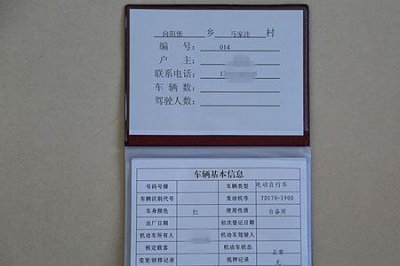 向阳堡 乡 马家洼 村
编 号: 014
户 主:
联系电话: 13
车 辆 数:
驾驶人数:
车辆基本信息
号码号牌 车辆类型 电动自行车
车辆识别代号 发动机号 YB170-1900
车身颜色 红 使用性质 自备用
出厂日期 初次登记日期
机动车所有人 机动车驾驶人
核定载客 机动车状态 正常
变更/转移记录 抵押记录 无